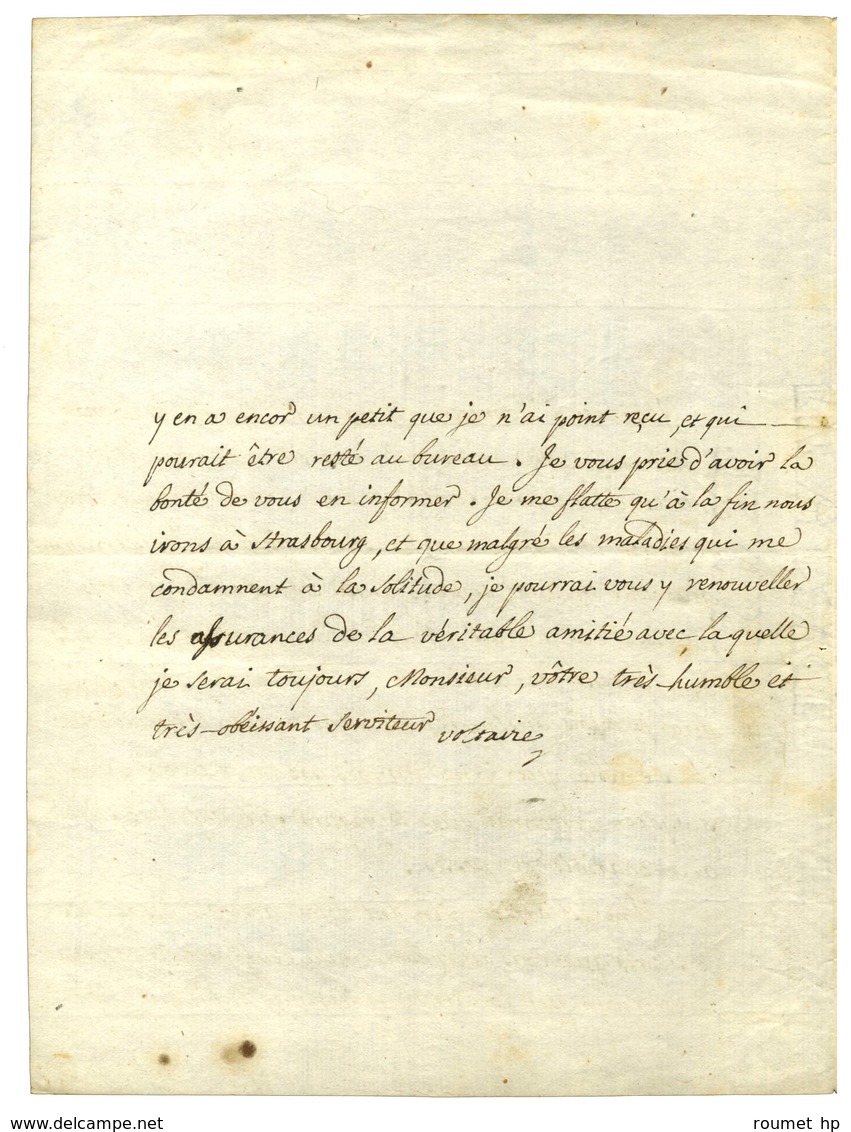 y en a encor un petit que je n'ai point reçu, et qui
pourait être resté au bureau. Je vous prie d'avoir la
bonté de vous en informer. Je me flatte qu'à la fin nous
irons à Strasbourg, et que malgré les maladies qui me
condamnent à la solitude, je pourrai vous y renouveller
les assurances de la véritable amitié avec la quelle
je serai toujours, Monsieur, vôtre très-humble et
très-obéissant serviteur voltaire
www.delcampe.net
roumet hp